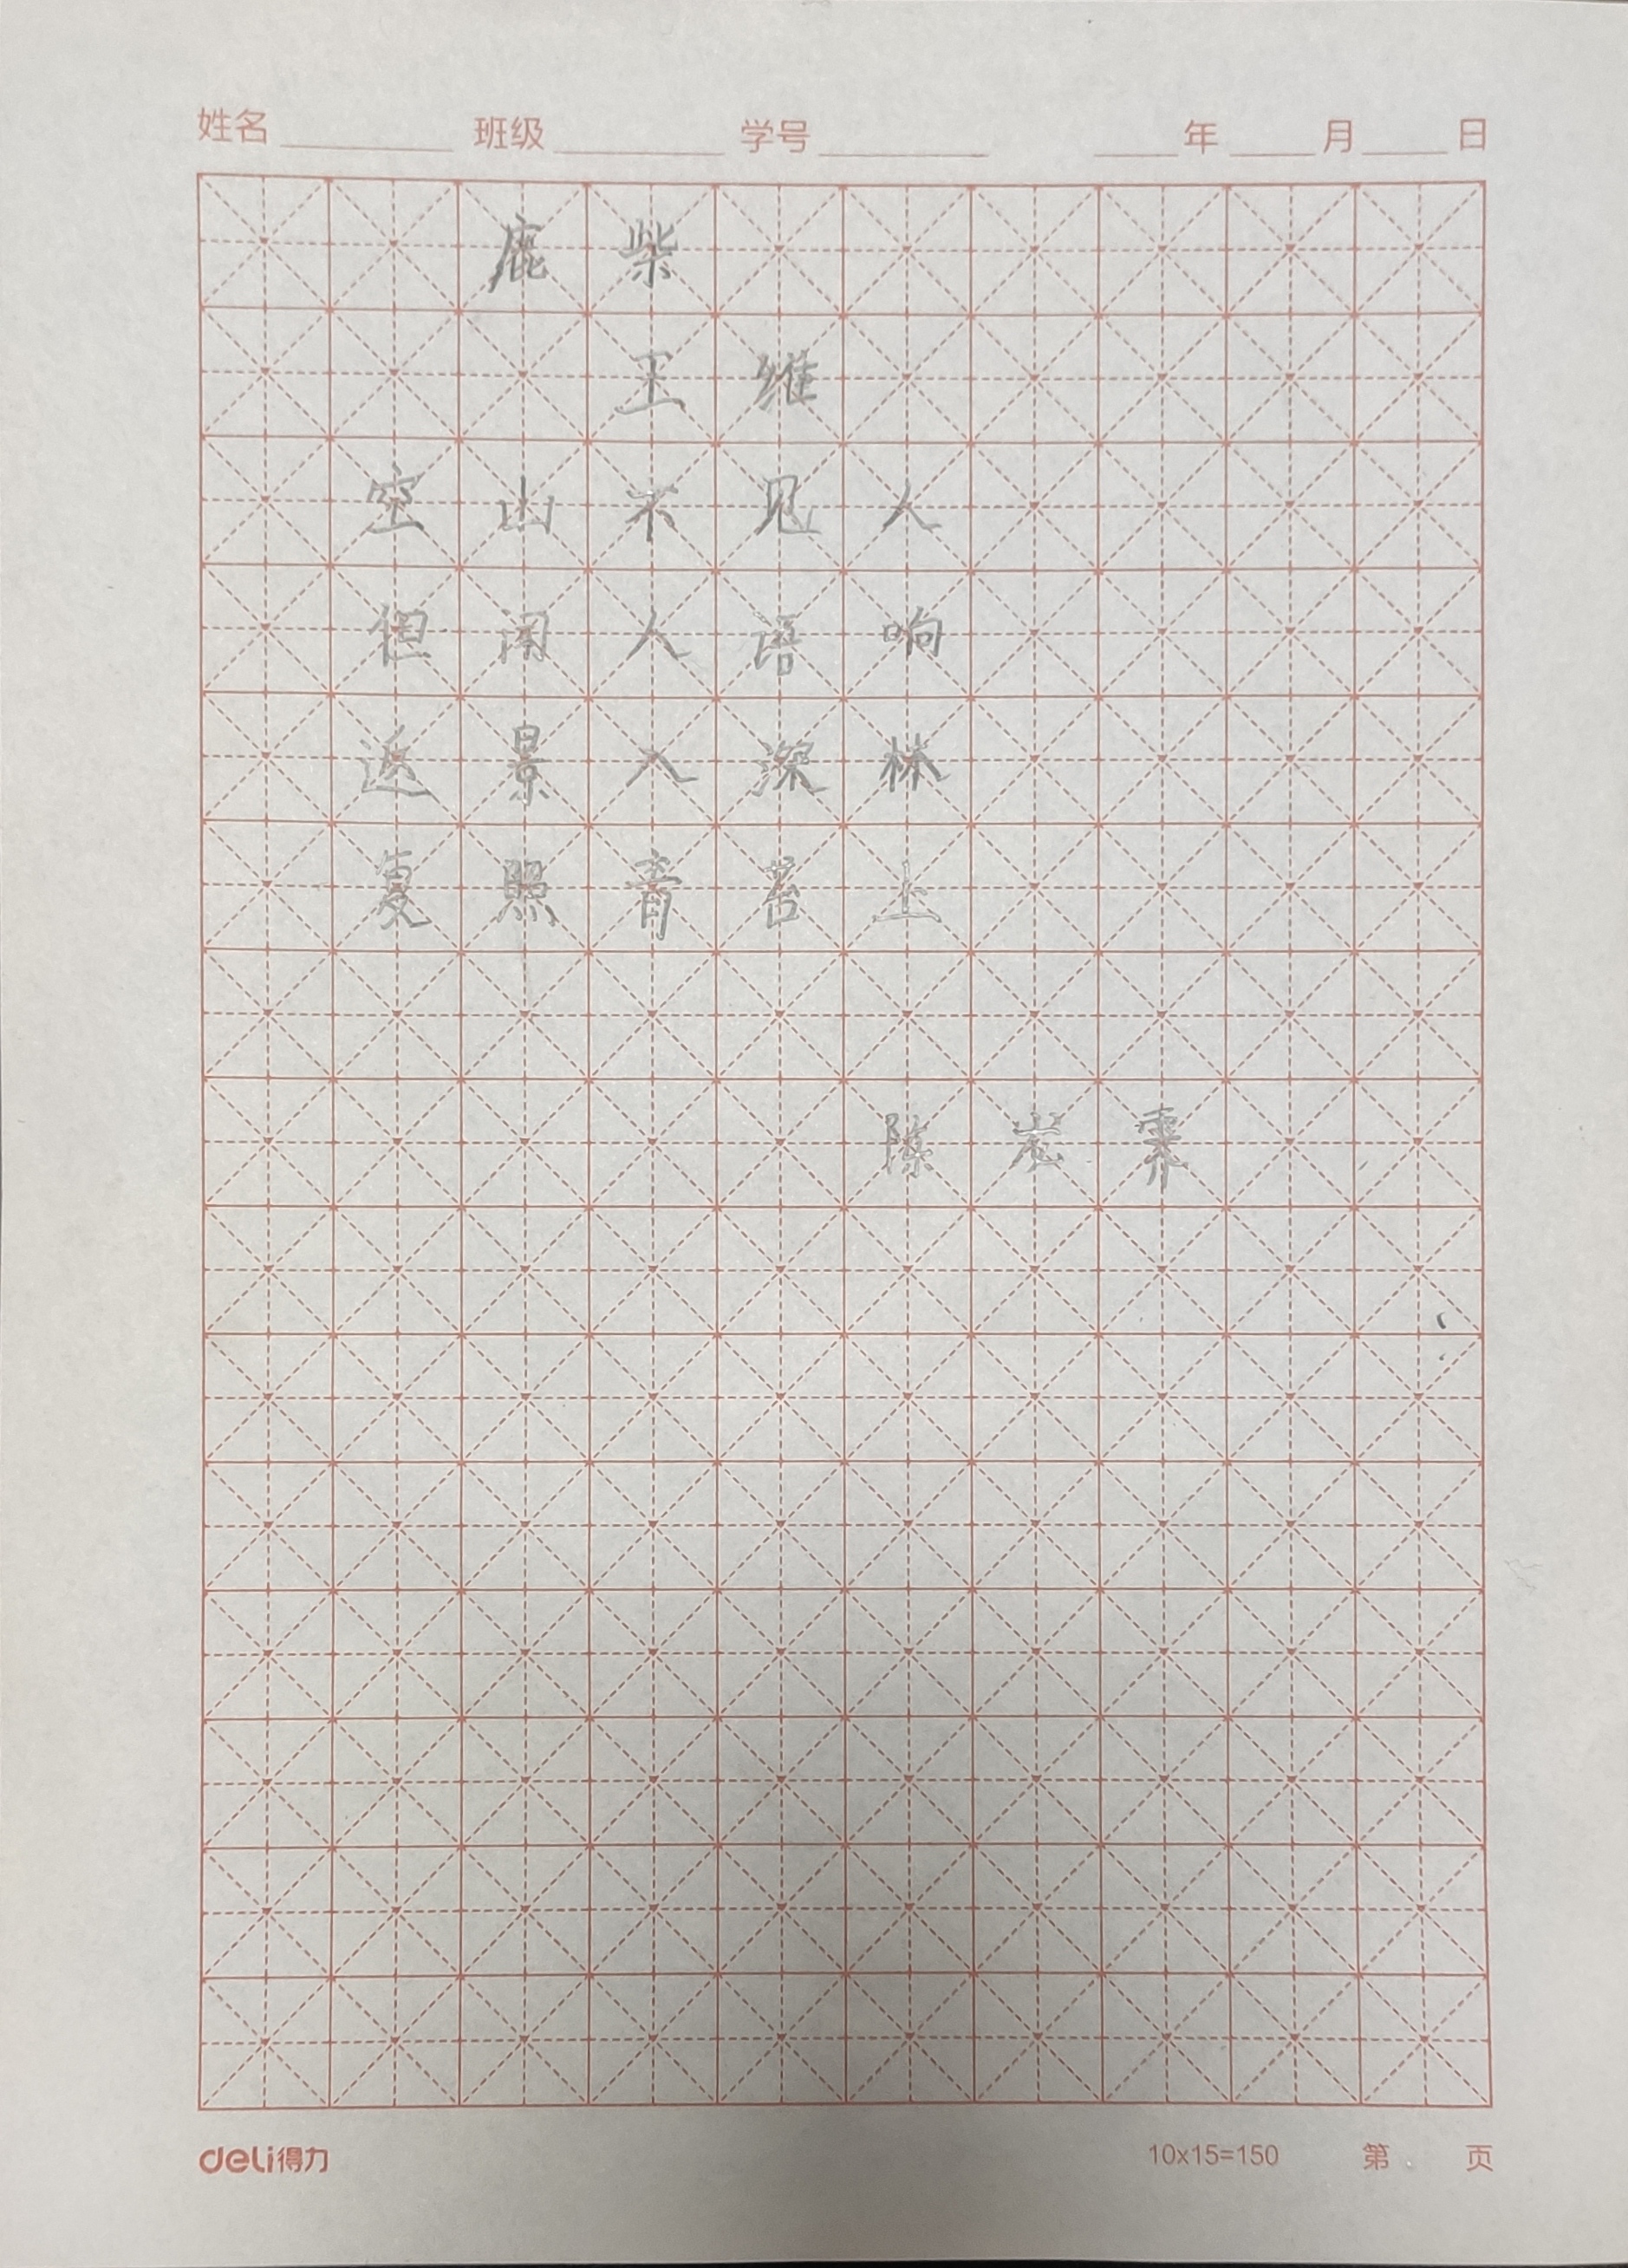 姓名 班级 学号 年 月 日
鹿柴
王维
空山不见人
但闻人语响
返景入深林
复照青苔上
陈
deli得力 10x15=150 第 页